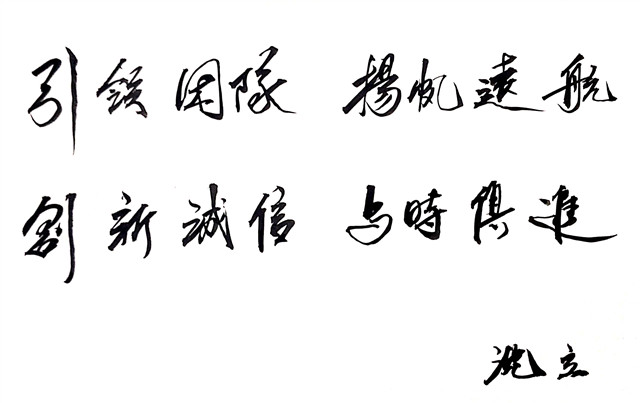 引領团隊 揚帆遠航
創新誠信 与時俱進